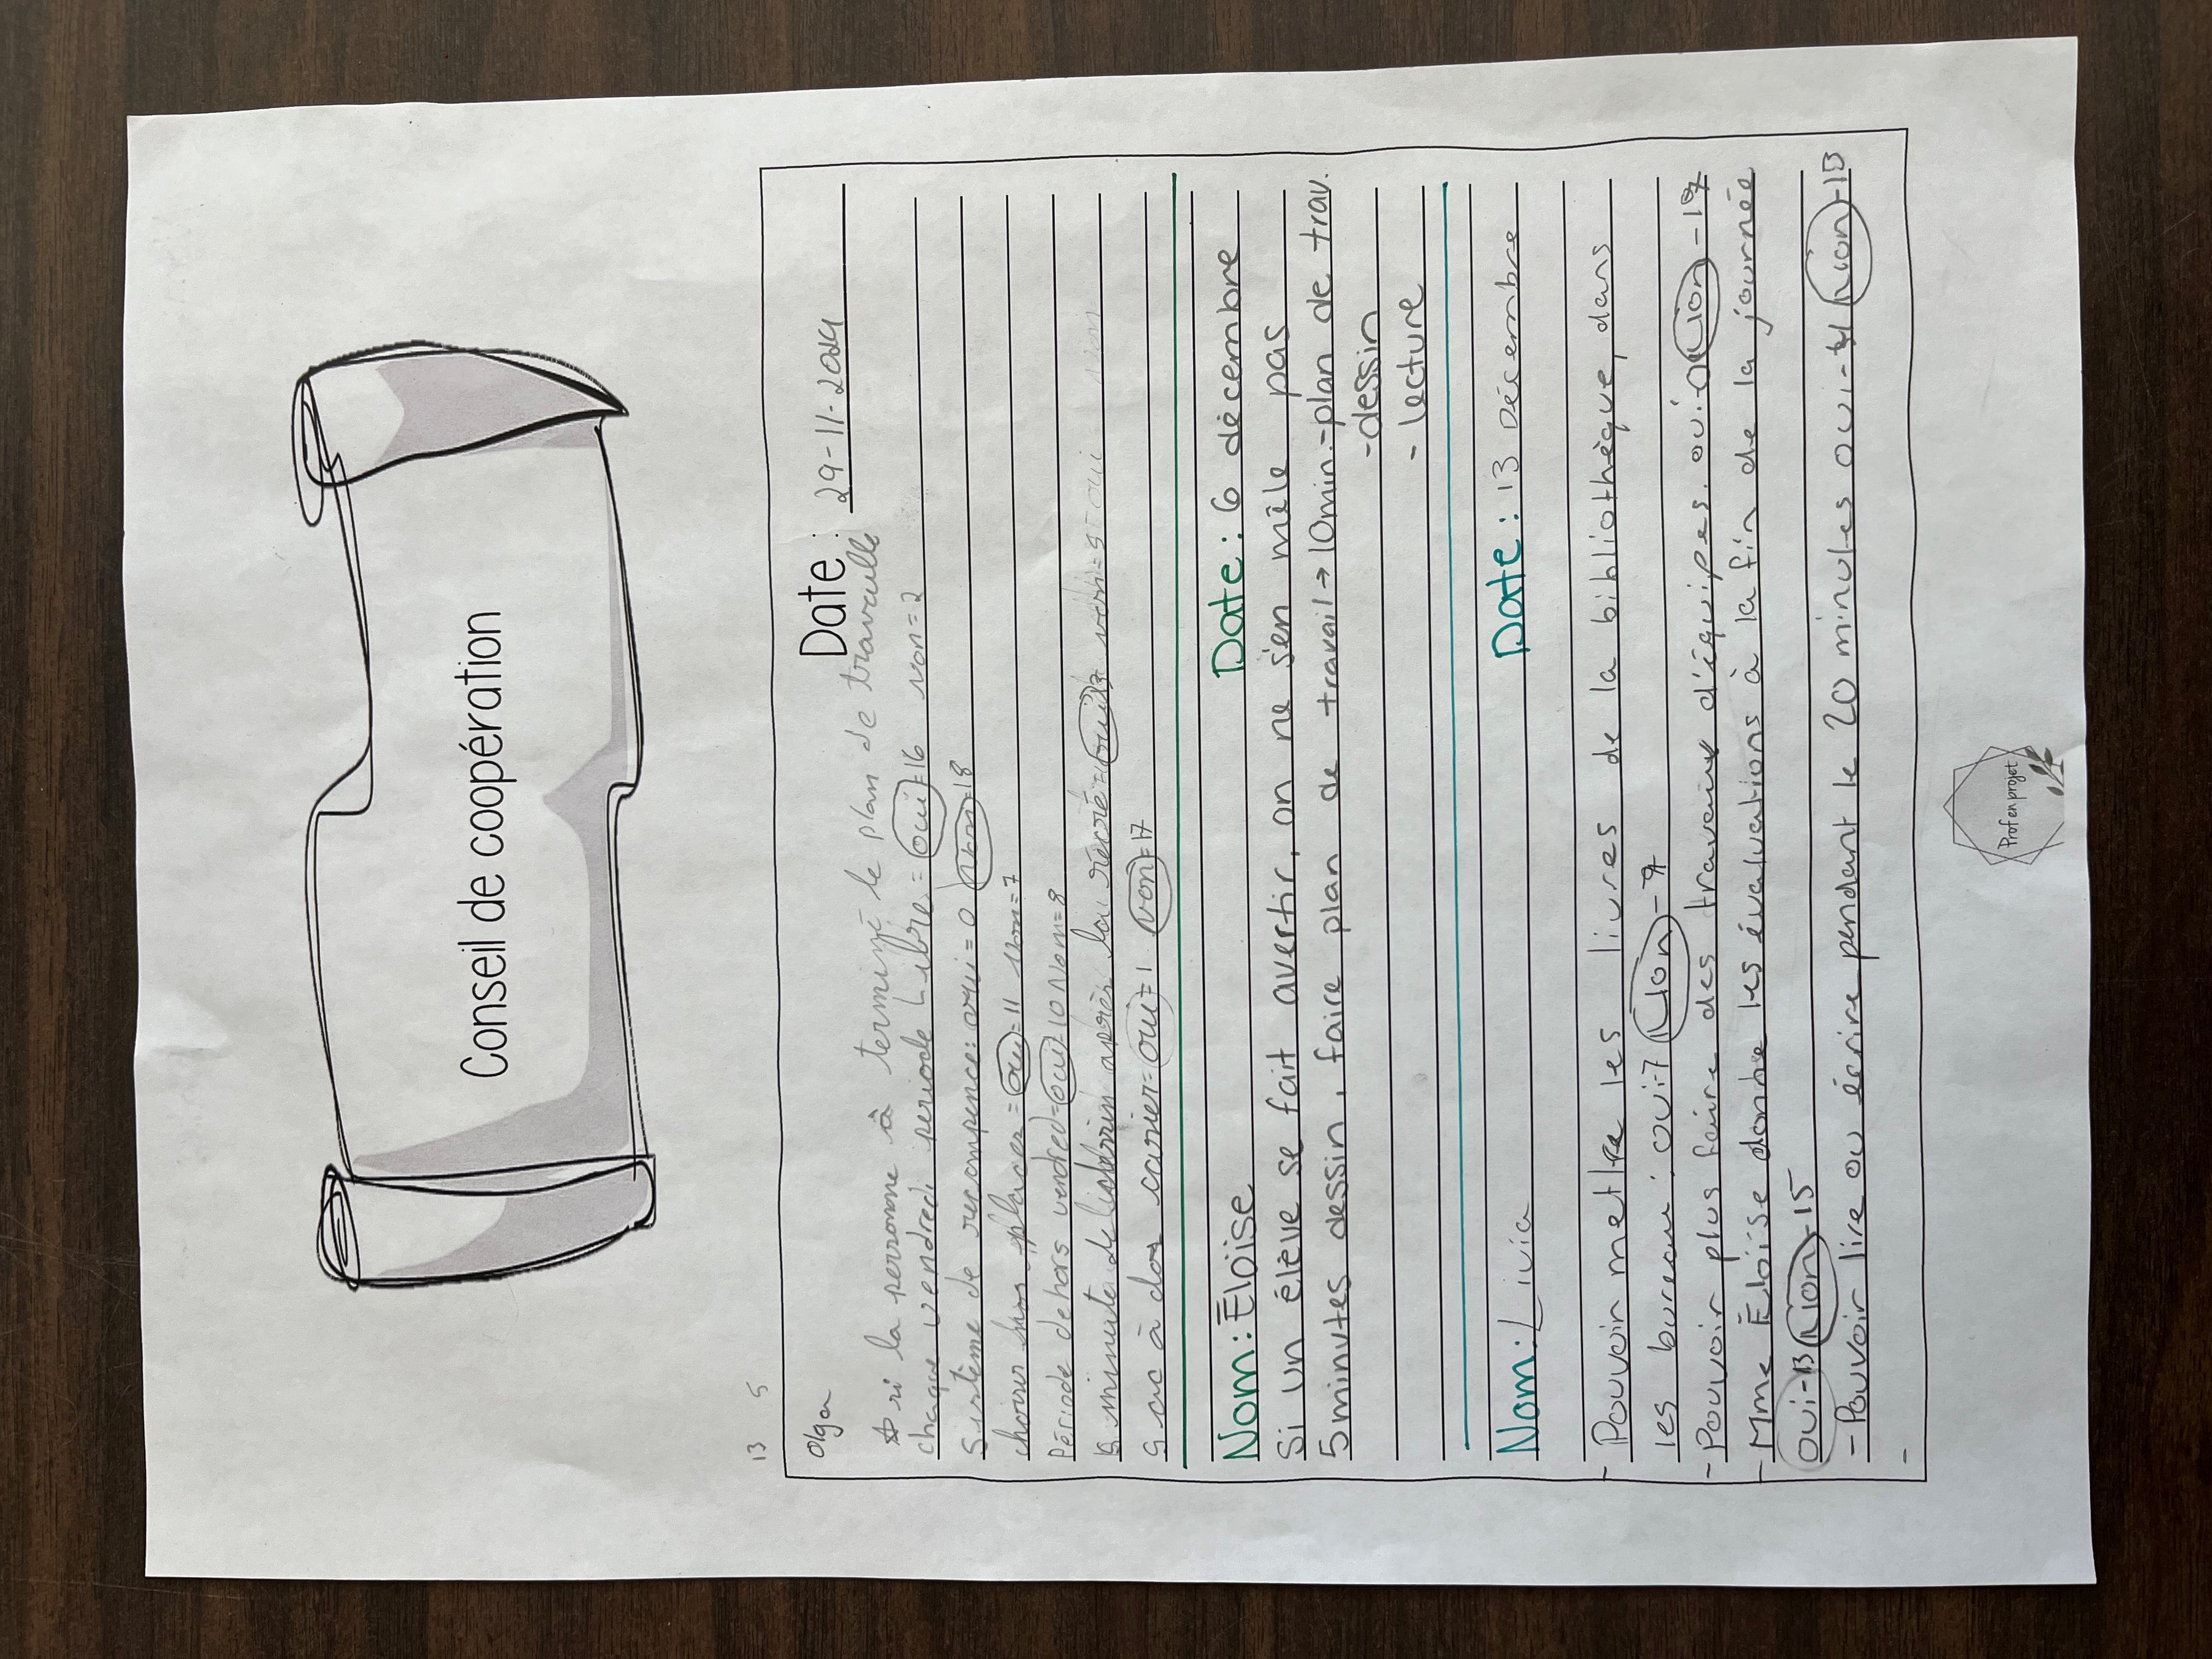 Conseil de coopération
13 5
Olga Date : 29-11-2024
si la personne à terminé le plan de travaille
chaque vendredi periode libre = oui = 16 non = 2
Sistème de recompence: oui = 0 non = 18
choisir places = oui = 11 non = 7
Période dehors vendredi = oui = 10 Non = 8
5 minute de après la récré = oui
sac à dos casier = oui = 1 non = 17
Nom : Éloïse Date : 6 décembre
Si un élève se fait avertir, on ne s'en mêle pas
5 minutes dessin, faire plan de travail → 10 min. - plan de trav.
- dessin
- lecture
Nom : Livia Date : 13 Décembre
- Pouvoir metre les livres de la bibliothèque, dans
les bureau : oui-7 Non -
- Pouvoir plus faire des travaux d'équipes. oui-0 Non - 19
- Mme Éloïse donne les évaluations à la fin de la journée
oui-13 Non-15
- Pouvoir lire ou écrire pendant le 20 minutes oui- Non-13
-
Prof en projet